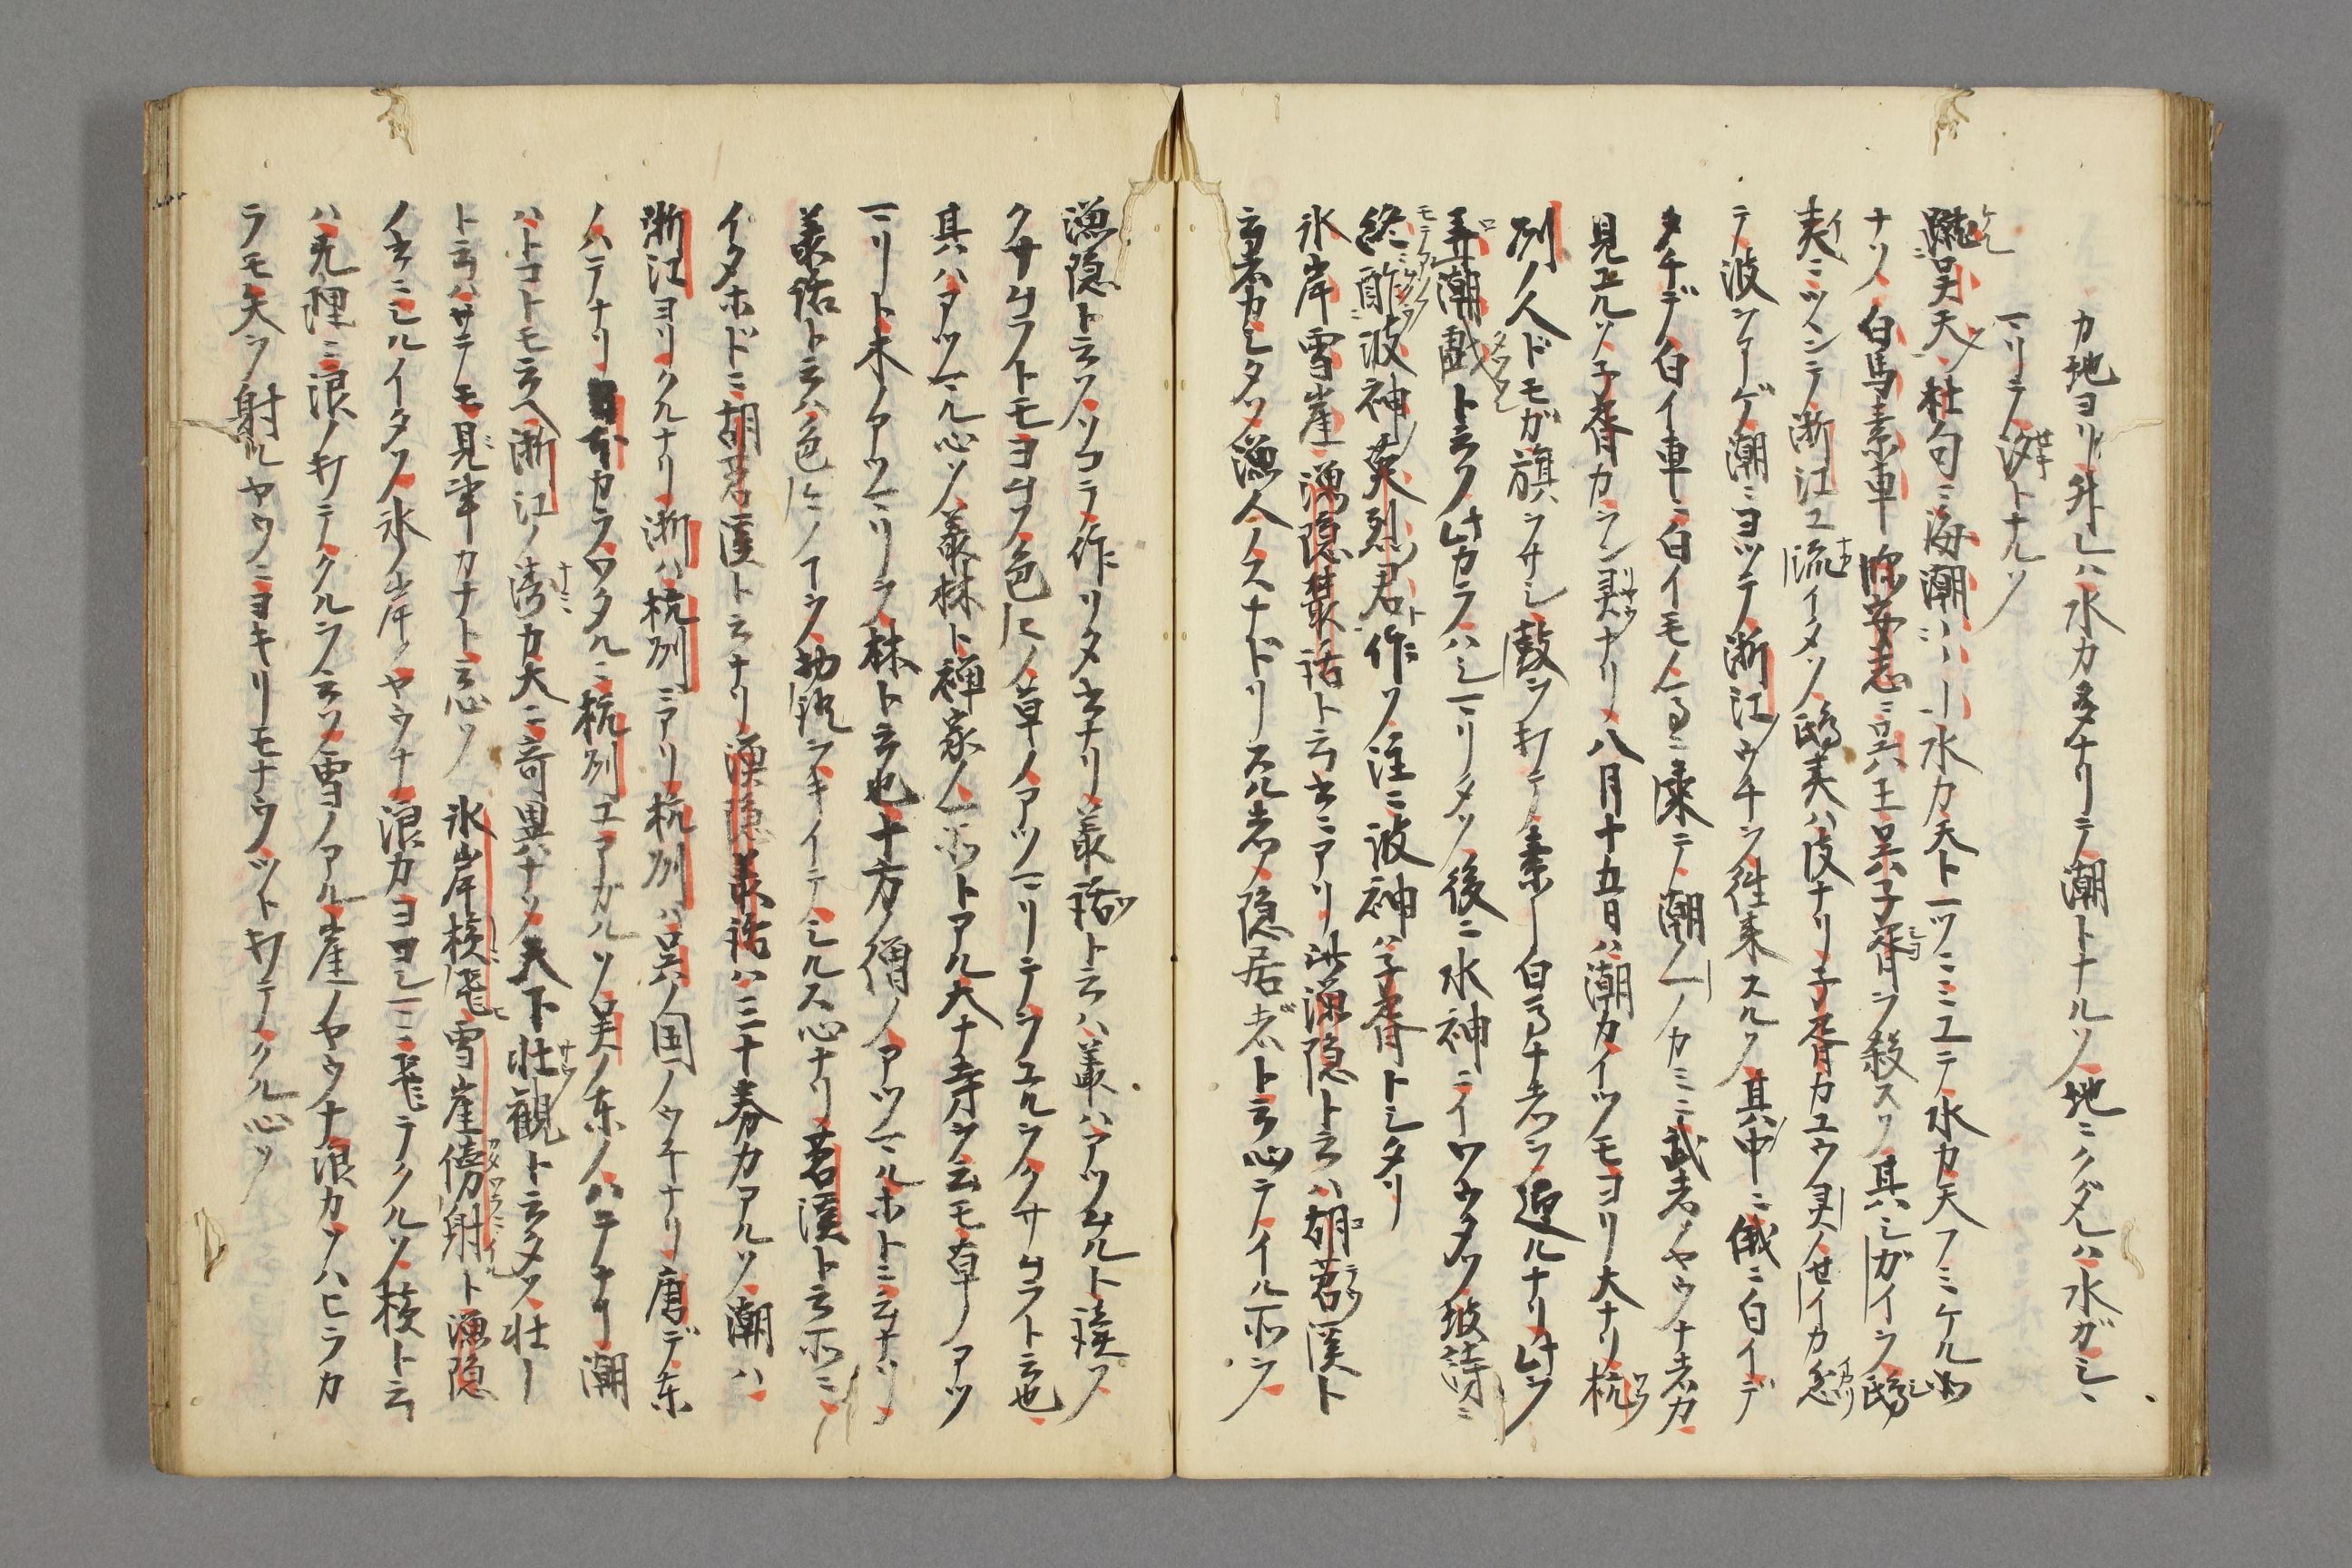 カ地ヨリ升レハ水カ多ナリテ潮トナルソ地ニクダレハ水ガシヽ
マリテ汐トナルソ
蹴呉天ヲ杜句ニ海潮ハ水カ天ト一ツニミユテ水カ天フミケル如
ナソ白馬素車 臨安志ニ呉王呉子胥ヲ殺スソ其シガイヲ鴟
夷ニツヽンテ浙江エ流イタソ鴟夷ハ皮ナリ子胥カユウ灵ノせイカ忿
テ波ヲアゲ潮ニヨツテ浙江ノウチヲ往来スルソ其中ニ俄ニ白イデ
タチデ白イ車ニ白イモノ馬ニ乗テ潮ノ上ノカミニ武者ノヤウナ者カ
見エルソ子胥カラン灵ナリ八月十五日ハ潮カイツモヨリ大ナリ杭
州ノ人ドモガ旗ヲサシ鼓ヲ打テ素ー白ウナ者ヲ迎ルナリ此ヲ
弄潮戯ト云ソ此カラハシマリタソ後ニ水神ニイワウタソ坡詩ニ
終酢波神英烈君ト作ソ注ニ波神ハ子胥トシタリ
氷岸雪崖漁隠叢話ト云書ニアリ 漁隠ト云ハ胡苕溪ト
云者カシタソ漁人ノスナドリスル者ノ隠居者トテイル所ヲ
漁隠ト云ソソコヲ作リタ書ナリ叢話ト云ハ叢ハアツムルト読ソ
クサムラトモヨムソ色々ノ草ノアツマリテヲユルヲクサムラト云也
其ハアツマル心ソ叢林ト禅家ノ所トアル大ナ寺ヲ云モ草ノアツ
マリト木ノアツマリヲ林ト云也十方ノ僧ノアツマルホトニ云ナリ
叢話ト云ハ色々ノコヲ物語ヲキイテシルス心ナリ苕溪ト云所ニ
イタホドニ胡苕溪ト云ナリ漁隠叢話ハ三十巻カアルソ潮ハ
浙江ヨリクルナリ浙ハ杭州ニアリ杭州ハ呉ノ国ノウチナリ唐デ東
ノハテナリ カラワタルニ杭州エアガルソ呉ノ東ノハテナリ潮
ハトコトモ云ヘ浙江ノ濤カ大ニ奇異ナソ天下壮観ト云タソ壮ー
ト云ハサテモ見事カナト云心ソ 氷岸横飛雪崖傍射ト漁隠
ノ書ニシルイタソ氷ノ岸ノヤウナ浪カヨコシマニ飛テクルソ横ト云
ハ無理ニ浪ノ打テクルヲ云ソ雪ヨノアル崖ノヤウナ浪カソハヒラカ
ラモ矢ヲ射ルヤウニヨキリモナウソツト打テクル心ソ